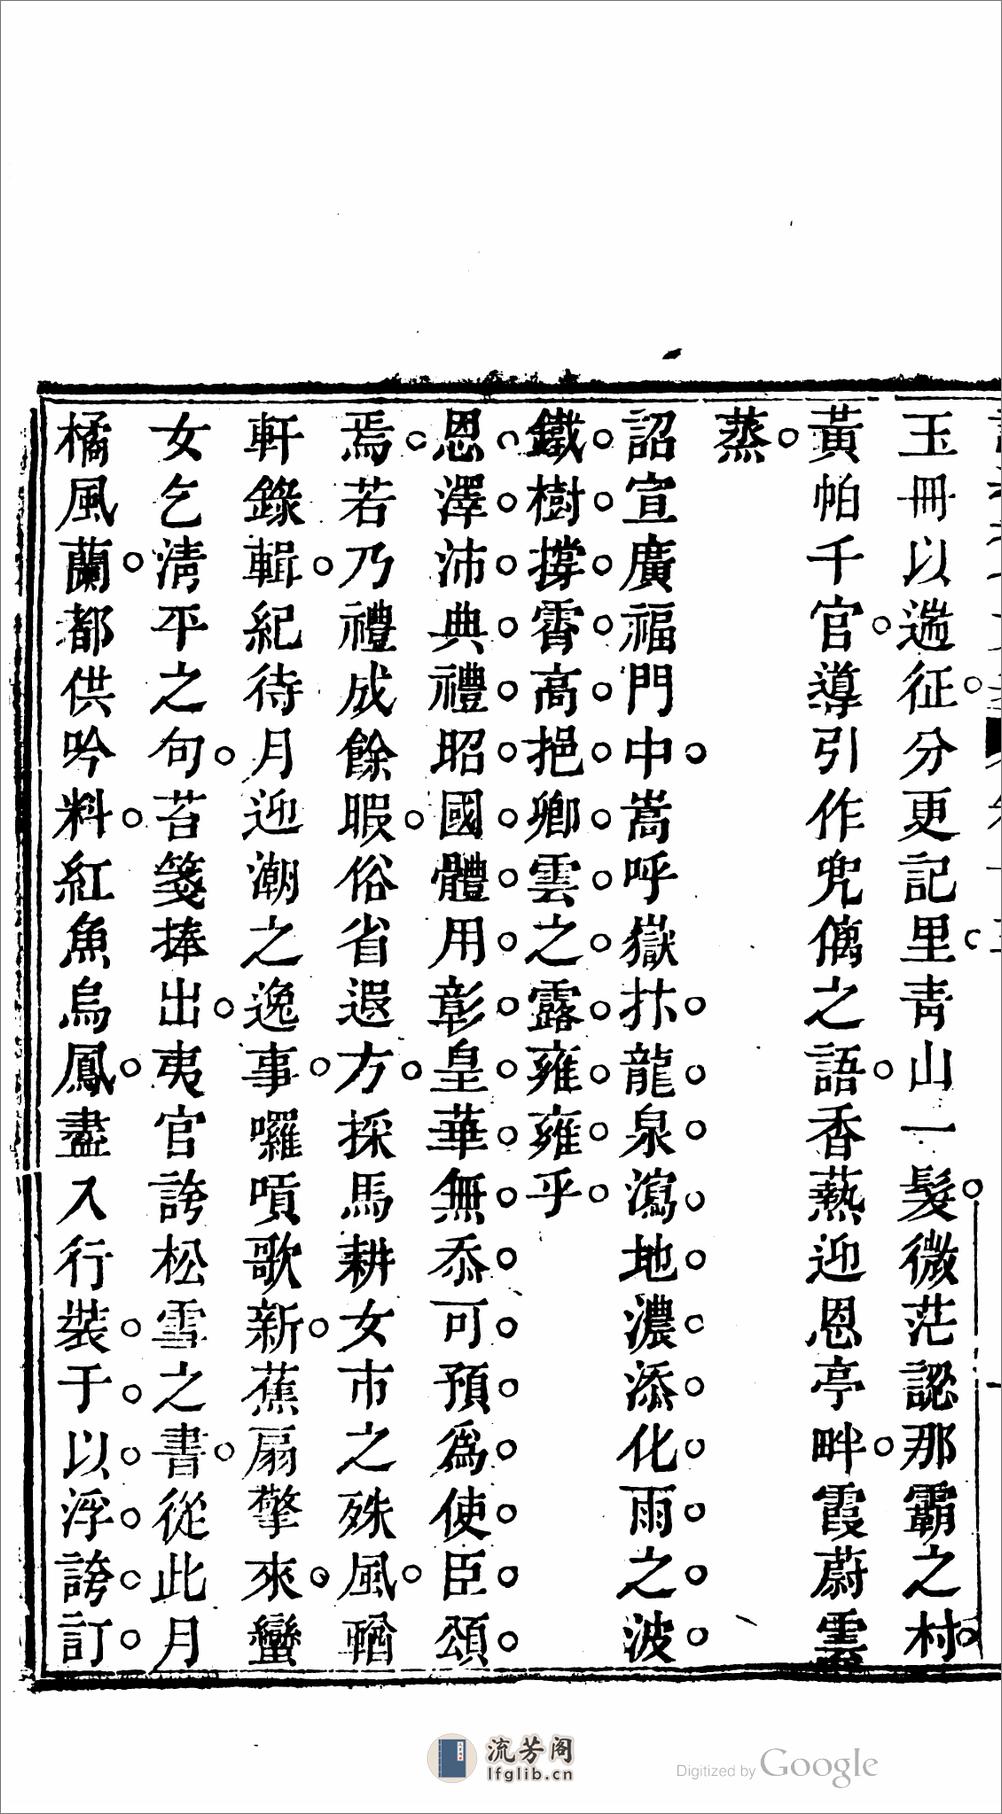 玉冊以遄征分更記里青山一髮微茫認那霸之村
黃帕千官導引作兜儷之語香熱迎恩亭畔霞蔚雲
蒸
詔宣廣福門中嵩呼嶽抃龍泉瀉地濃添化雨之波
鐵樹撐霄高挹卿雲之露雍雍乎
恩澤沛典禮昭國體用彰皇華無忝可預爲使臣頌
焉若乃禮成餘暇俗省遐方採馬耕女市之殊風輶
軒錄輯紀待月迎潮之逸事囉嗊歌新蕉扇擎來蠻
女乞淸平之句苔箋捧出夷官誇松雪之書從此月
橘風蘭都供吟料紅魚烏鳳盡入行裝于以浮誇訂
流芳阁
lfglib.cn
Digitized by Google